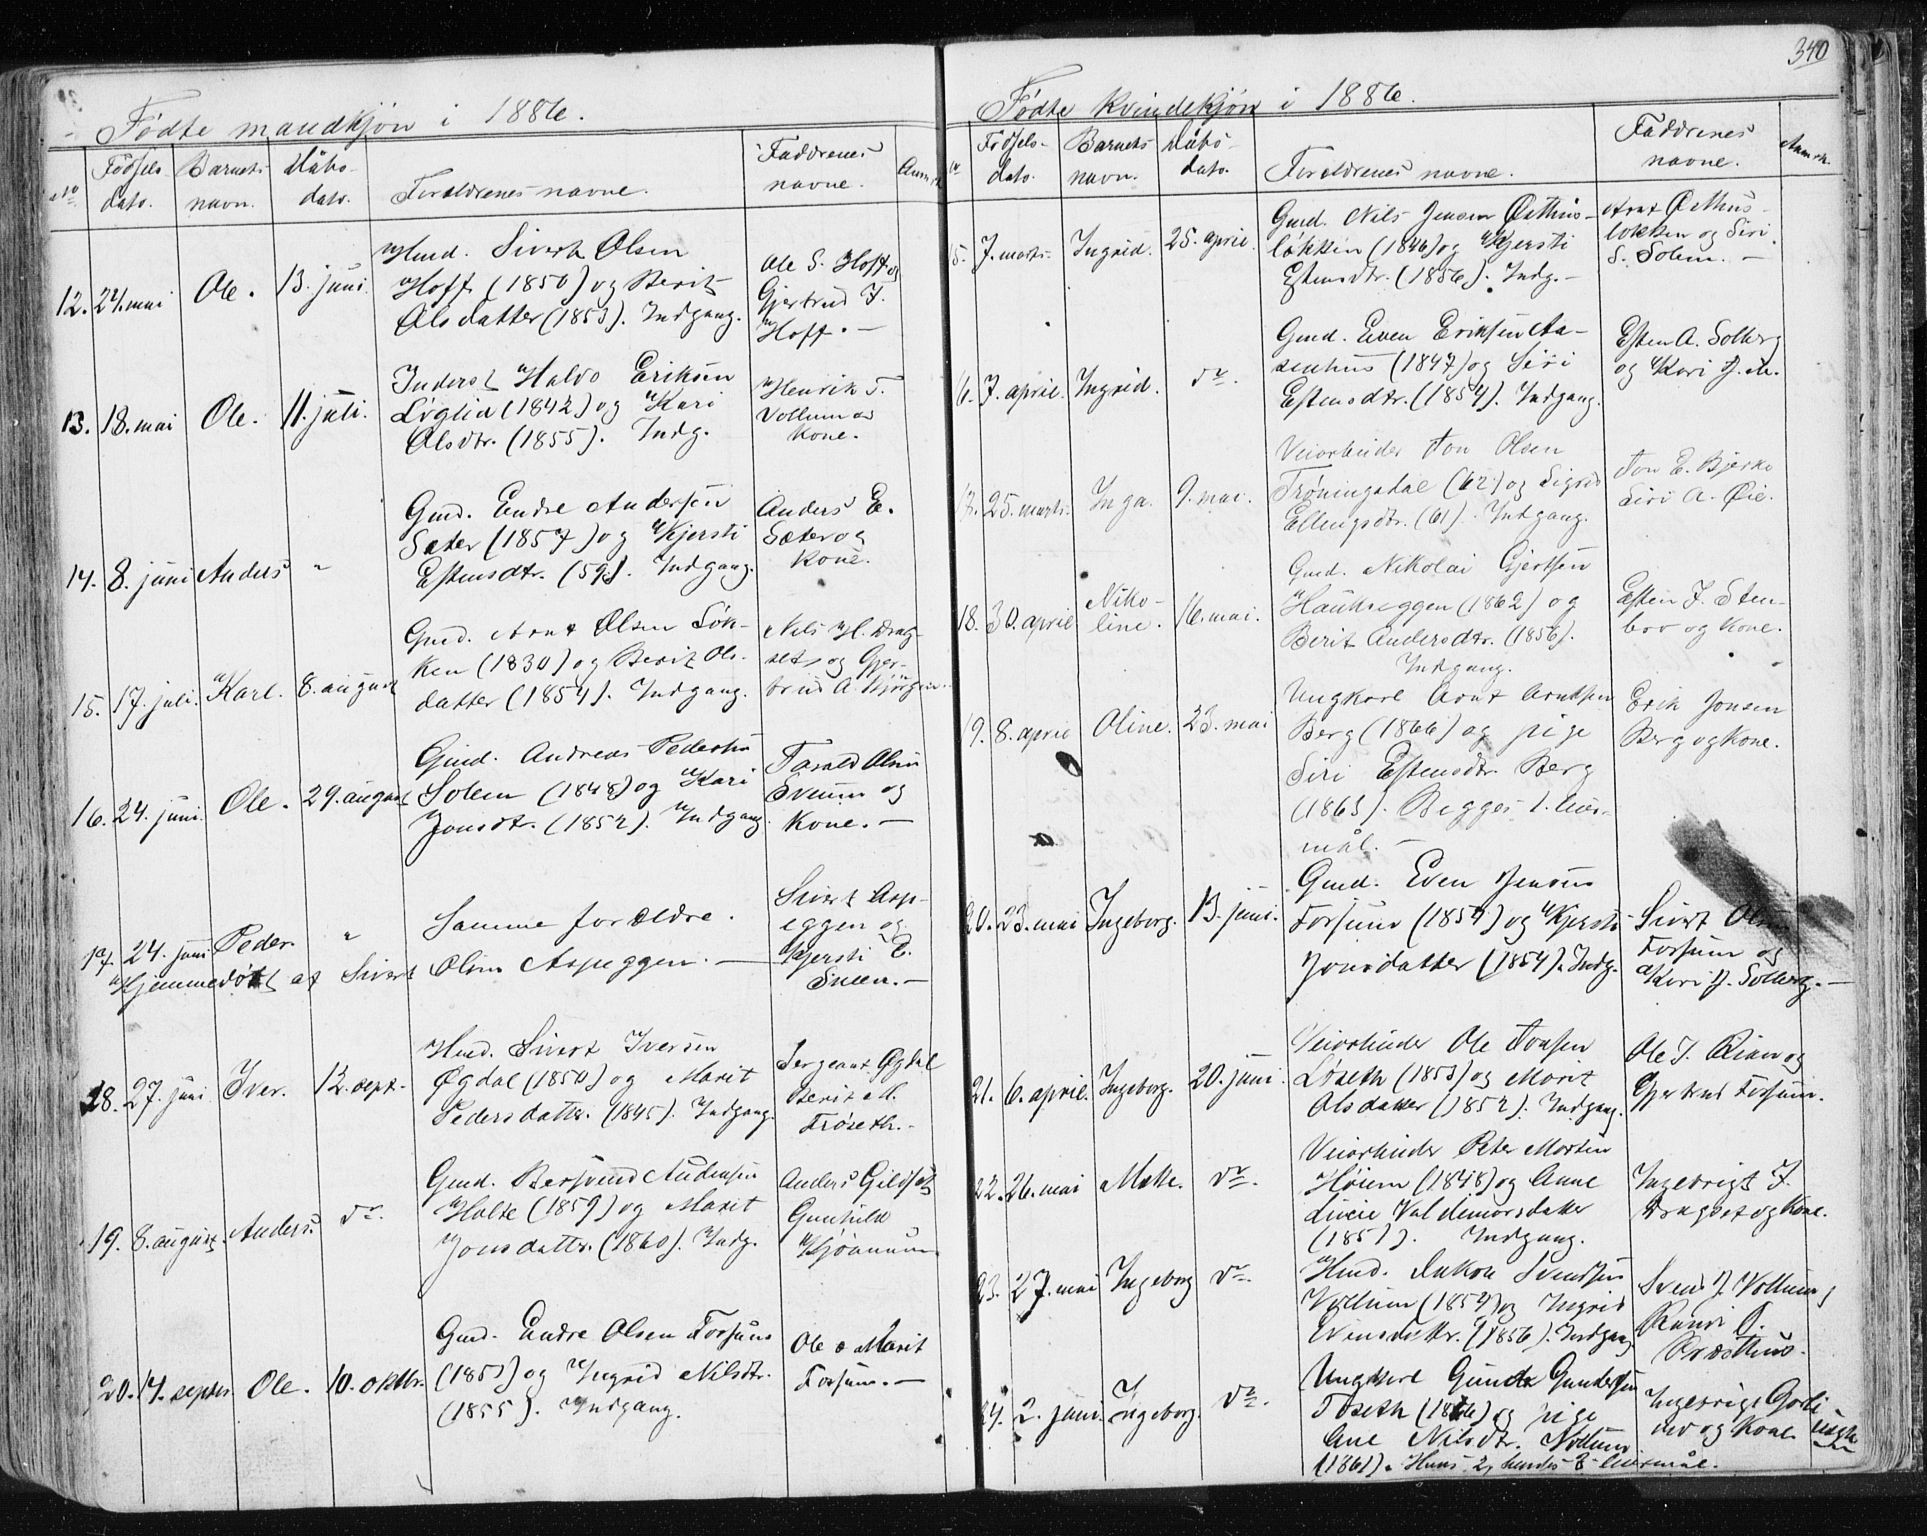 340
Fødte mandkjøn i 1886.
No
Fødsels dato.
Barnets navn.
Dåbs dato.
Forældrenes navne.
Faddrenes navne.
Anm.
12. 24. mai Ole. 13. juni.
Hmd. Sivert Olsen
Hoff (1850) og Berit
Olsdatter (1853). Indgang.
Ole S. Hoff og
Gjertrud J.
Hoff. —
13. 18. mai Ole. 11. juli.
Inderst Halvo Eriksen
Løglia (1842) og Kari
Olsdtr. (1855). Indg.
Henrik T.
Vollum og
Kone.
14. 8. juni Anders "
Gmd. Endre Andersen
Sæter (1857) og Kjersti
Estensdtr. (59). Indgang.
Anders E.
Sæter og
Kone.
15. 17. juli. Karl. 8. august
Gmd. Arnt Olsen Løk-
ken (1830) og Berit Ols-
datter (1854). Indgang.
Nils H. Drag-
set og Gjer-
trud A.
16. 24. juni. Ole. 29. august
Gmd. Andreas Pedersen
Solem (1848) og Kari
Jonsdt. (1852). Indgang.
Tarald Olsen
Sveum og
Kone. —
17. 24. juni Peder. "
Samme forældre.
Hjemmedøbt af Sivert Olsen Aspeggen. —
Sivert Asp-
eggen og
Kjersti E.
Sneen. —
18. 27. juni Iver. 12. sept.
Hmd. Sivert Iversen
Øgdal (1850) og Marit
Pedersdattr. (1845). Indgang.
Sergeant Øgdal
Berit A.
Frøseth. —
19. 8. august. Anders. do.
Gmd. Bersvend Andersen
Holte (1859) og Marit
Jonsdattr. (1860). Indg.
Anders Gildset
Gunhild
20. 14. septbr. Ole. 10. oktbr.
Gmd. Endre Olsen Forsum
(1853) og Ingrid Nilsdtr.
(1855). Indgang.
Ole o Marit
Forsum. —
Fødte Kvindekjøn i 1886.
No
Fødsels-dato.
Barnets navn.
Dåbs-dato.
Forældrenes navne.
Faddrenes navne.
Anmrk.
15. 7. marts. Ingrid. 25. april.
Gmd. Nils Jensen Østhus-
løkken (1846) og Kjersti
Estensdtr. (1856). Indg. —
Arnt Østhus-
løkken og Siri
S. Solem. —
16. 7. april. Ingrid. do.
Gmd. Even Eriksen Aa-
senhus (1847) og Siri
Estensdtr. (1854). Indgang.
Esten A. Solberg
og Kari J. A.
17. 25. marts. Inga. 9. mai.
Veiarbeider Jon Olsen
Trøningsdal (62) og Sigrid
Ellingsdtr. (61). Indgang.
Jon E. Bjerke
Siri A. Øie.
18. 30. april Niko-
line. 16. mai.
Gmd. Nikolai Gjertsen
Haukseggen (1862) og
Berit Andersdtr. (1856).
Indgang.
Esten J. Sten-
bro og Kone.
19. 8. april Oline. 23. mai
Ungkarl Arnt Arntsen
Berg (1866) og pige
Siri Estensdtr. Berg
(1863). Begges 1. leier-
mål. —
Erik Jonsen
Berg og Kone.
20. 23. mai Ingeborg. 13. juni.
Gmd. Even Jensen
Forsum (1854) og Kjersti
Jonsdatter (1854). Indg.
Sivert Olsen
Forsum og
Kari J. Solberg. —
21. 6. april. Ingeborg. 20. juni.
Veiarbeider Ole Jonsen
Løseth (1853) og Marit
Olsdatter (1852). Indgang.
Ole J. Rian og
Gjertrud Forsum.
22. 26. mai Mette. do.
Veiarbeider Peter Morten
Høiem (1848) og Anne
Lucie Valdemarsdatter
(1851). Indgang.
Ingebrigt J.
Dragset og Kone.
23. 27. mai Ingeborg do.
Hmd. Hakon Svendsen
Vollum (1854) og Ingrid
(1856). Indgang
Svend J. Vollum og
24. 2. juni. Ingeborg. do.
Ungkarl Gunder Gundersen
Foseth (1866) og pige
Ane Nilsdtr. Vollum
(1861). Hans 2, hendes 3 leiermål.
Ingebrigt
og Kone
uægte